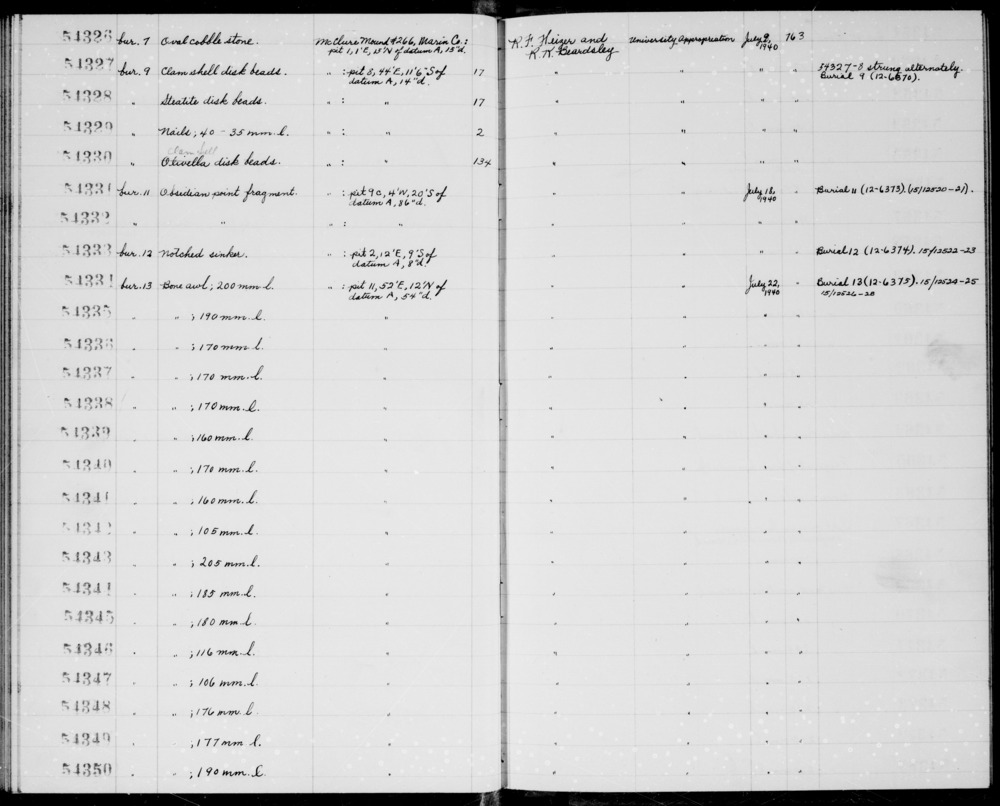 54326 bur. 7 Oval cobble stone. McClure Mound #266, Marin Co: R. F. Heizer and University Appropriation July 9, 763
pit 1, 1'E, 13'N of datum A, 15"d. R. K. Beardsley 1940
54327 bur. 9 Clam shell disk beads. " : pit 8, 44'E, 11'6"S of 17 " " " " 54327-8 strung alternately.
datum A, 14"d. Burial 9 (12-6370).
54328 " Steatite disk beads. " : " 17 " " " "
54329 " Nails; 40 - 35 mm. l. " : " 2 " " " "
clam shell
54330 " Olivella disk beads. " : " 134 " " " "
54331 bur. 11 Obsidian point fragment. " : pit 9c, 4'W, 20'S of " " July 18, " Burial 11 (12-6373). (15/12520-21).
datum A, 86"d. 1940
54332 " " " : " " " " "
54333 bur. 12 Notched sinker. " : pit 2, 12'E, 9'S of " " " " Burial 12 (12-6374). 15/12522-23
datum A, 8"d.
54334 bur. 13 Bone awl; 200 mm. l. " : pit 11, 52'E, 12'N of " " July 22, " Burial 13 (12-6375). 15/12524-25
datum A, 54"d. 1940 15/12526-28
54335 " " ; 190 mm. l. " " " " "
54336 " " ; 170 mm. l. " " " " "
54337 " " ; 170 mm. l. " " " " "
54338 " " ; 170 mm. l. " " " " "
54339 " " ; 160 mm. l. " " " " "
54340 " " ; 170 mm. l. " " " " "
54341 " " ; 160 mm. l. " " " " "
54342 " " ; 105 mm. l. " " " " "
54343 " " ; 205 mm. l. " " " " "
54344 " " ; 185 mm. l. " " " " "
54345 " " ; 180 mm. l. " " " " "
54346 " " ; 116 mm. l. " " " " "
54347 " " ; 106 mm. l. " " " " "
54348 " " ; 176 mm. l. " " " " "
54349 " ; 177 mm. l. " " " " "
54350 " " ; 190 mm. l. " " " " "